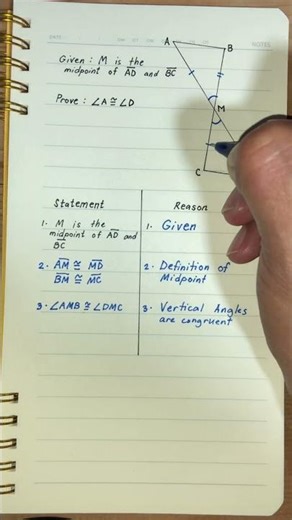 DATE
NOTES
Given : M is the
midpoint of AD and BC
Prove : ∠A ≅ ∠D
A
B
M
C
Statement
Reason
1. M is the
midpoint of AD and
BC
1. Given
2. AM ≅ MD
BM ≅ MC
2. Definition of
Midpoint
3. ∠AMB ≅ ∠DMC
3. Vertical Angles
are congruent